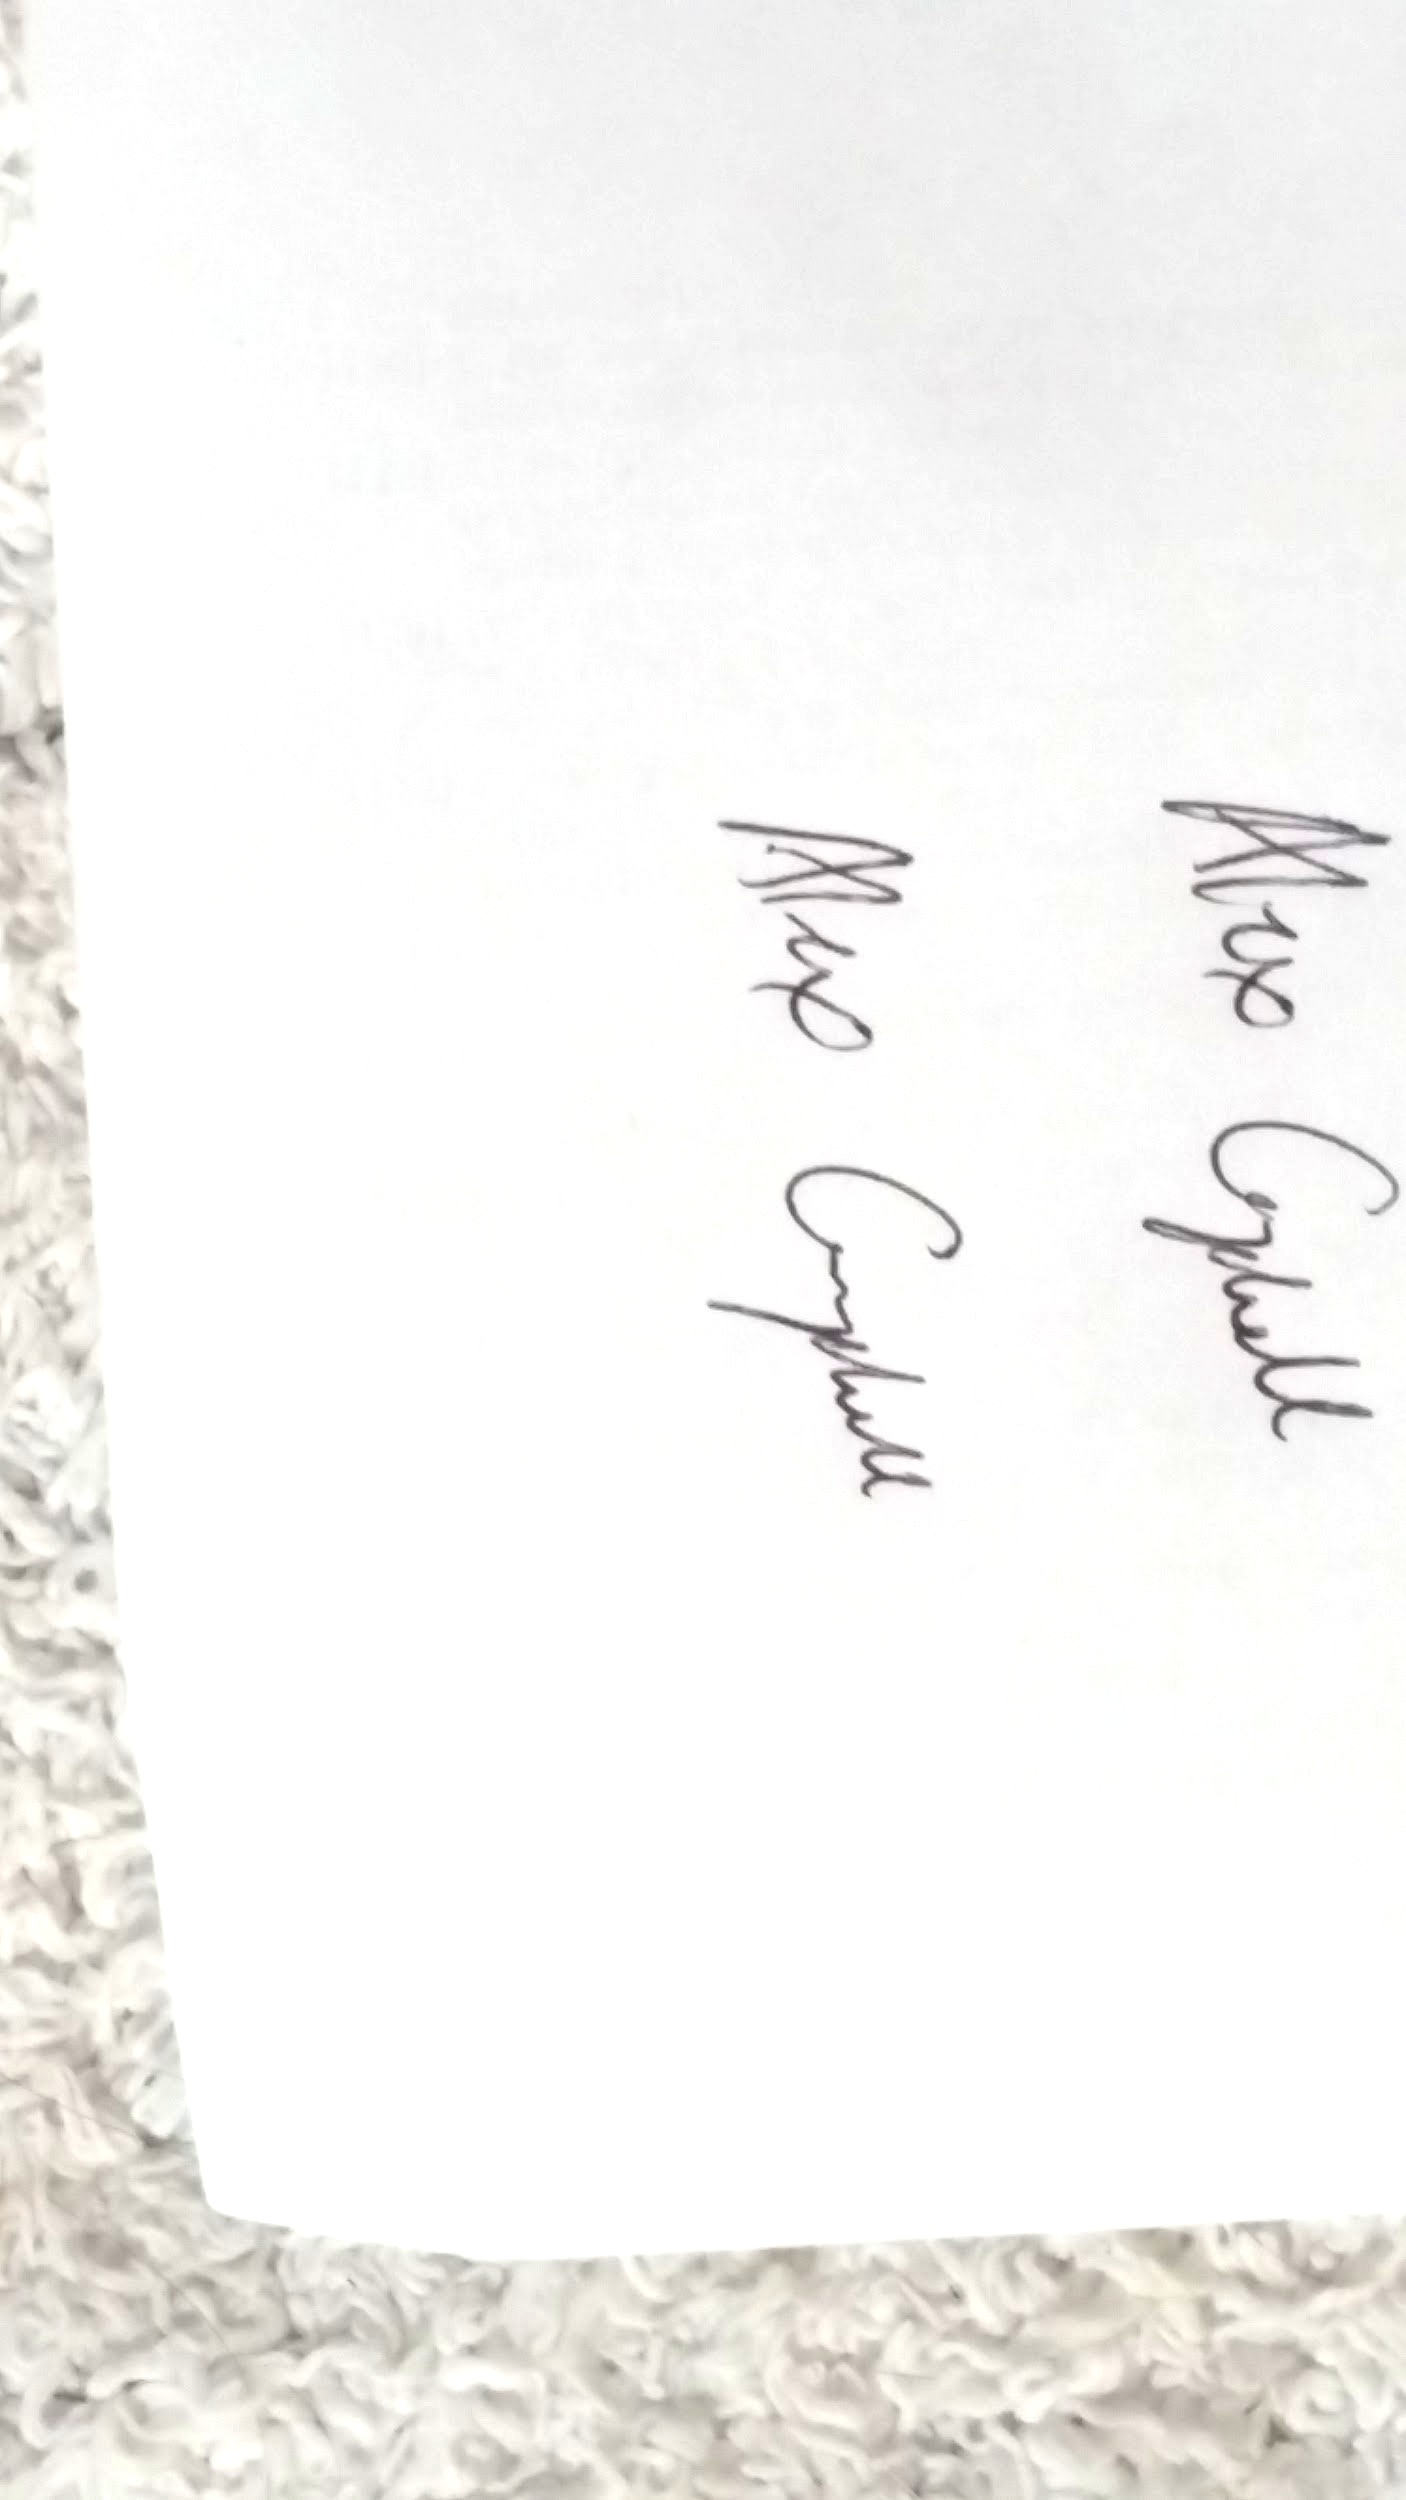 Alex Campbell
Alex Campbell